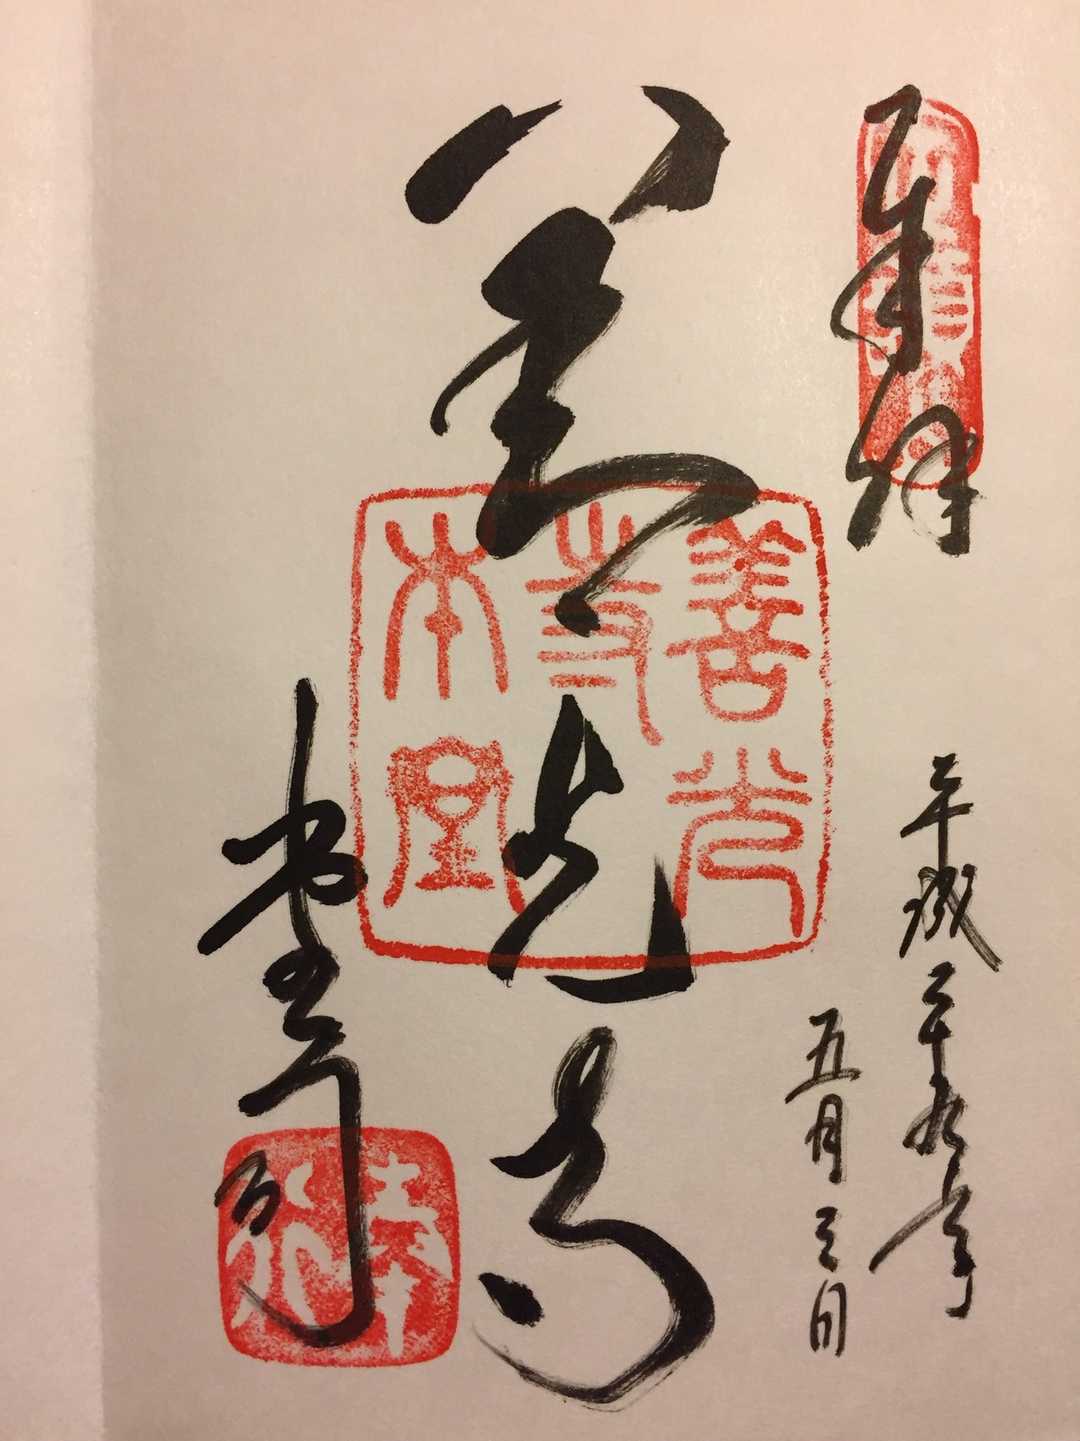 奉拝
平成二十九年
五月三日
善光寺
善光寺本堂
堂司